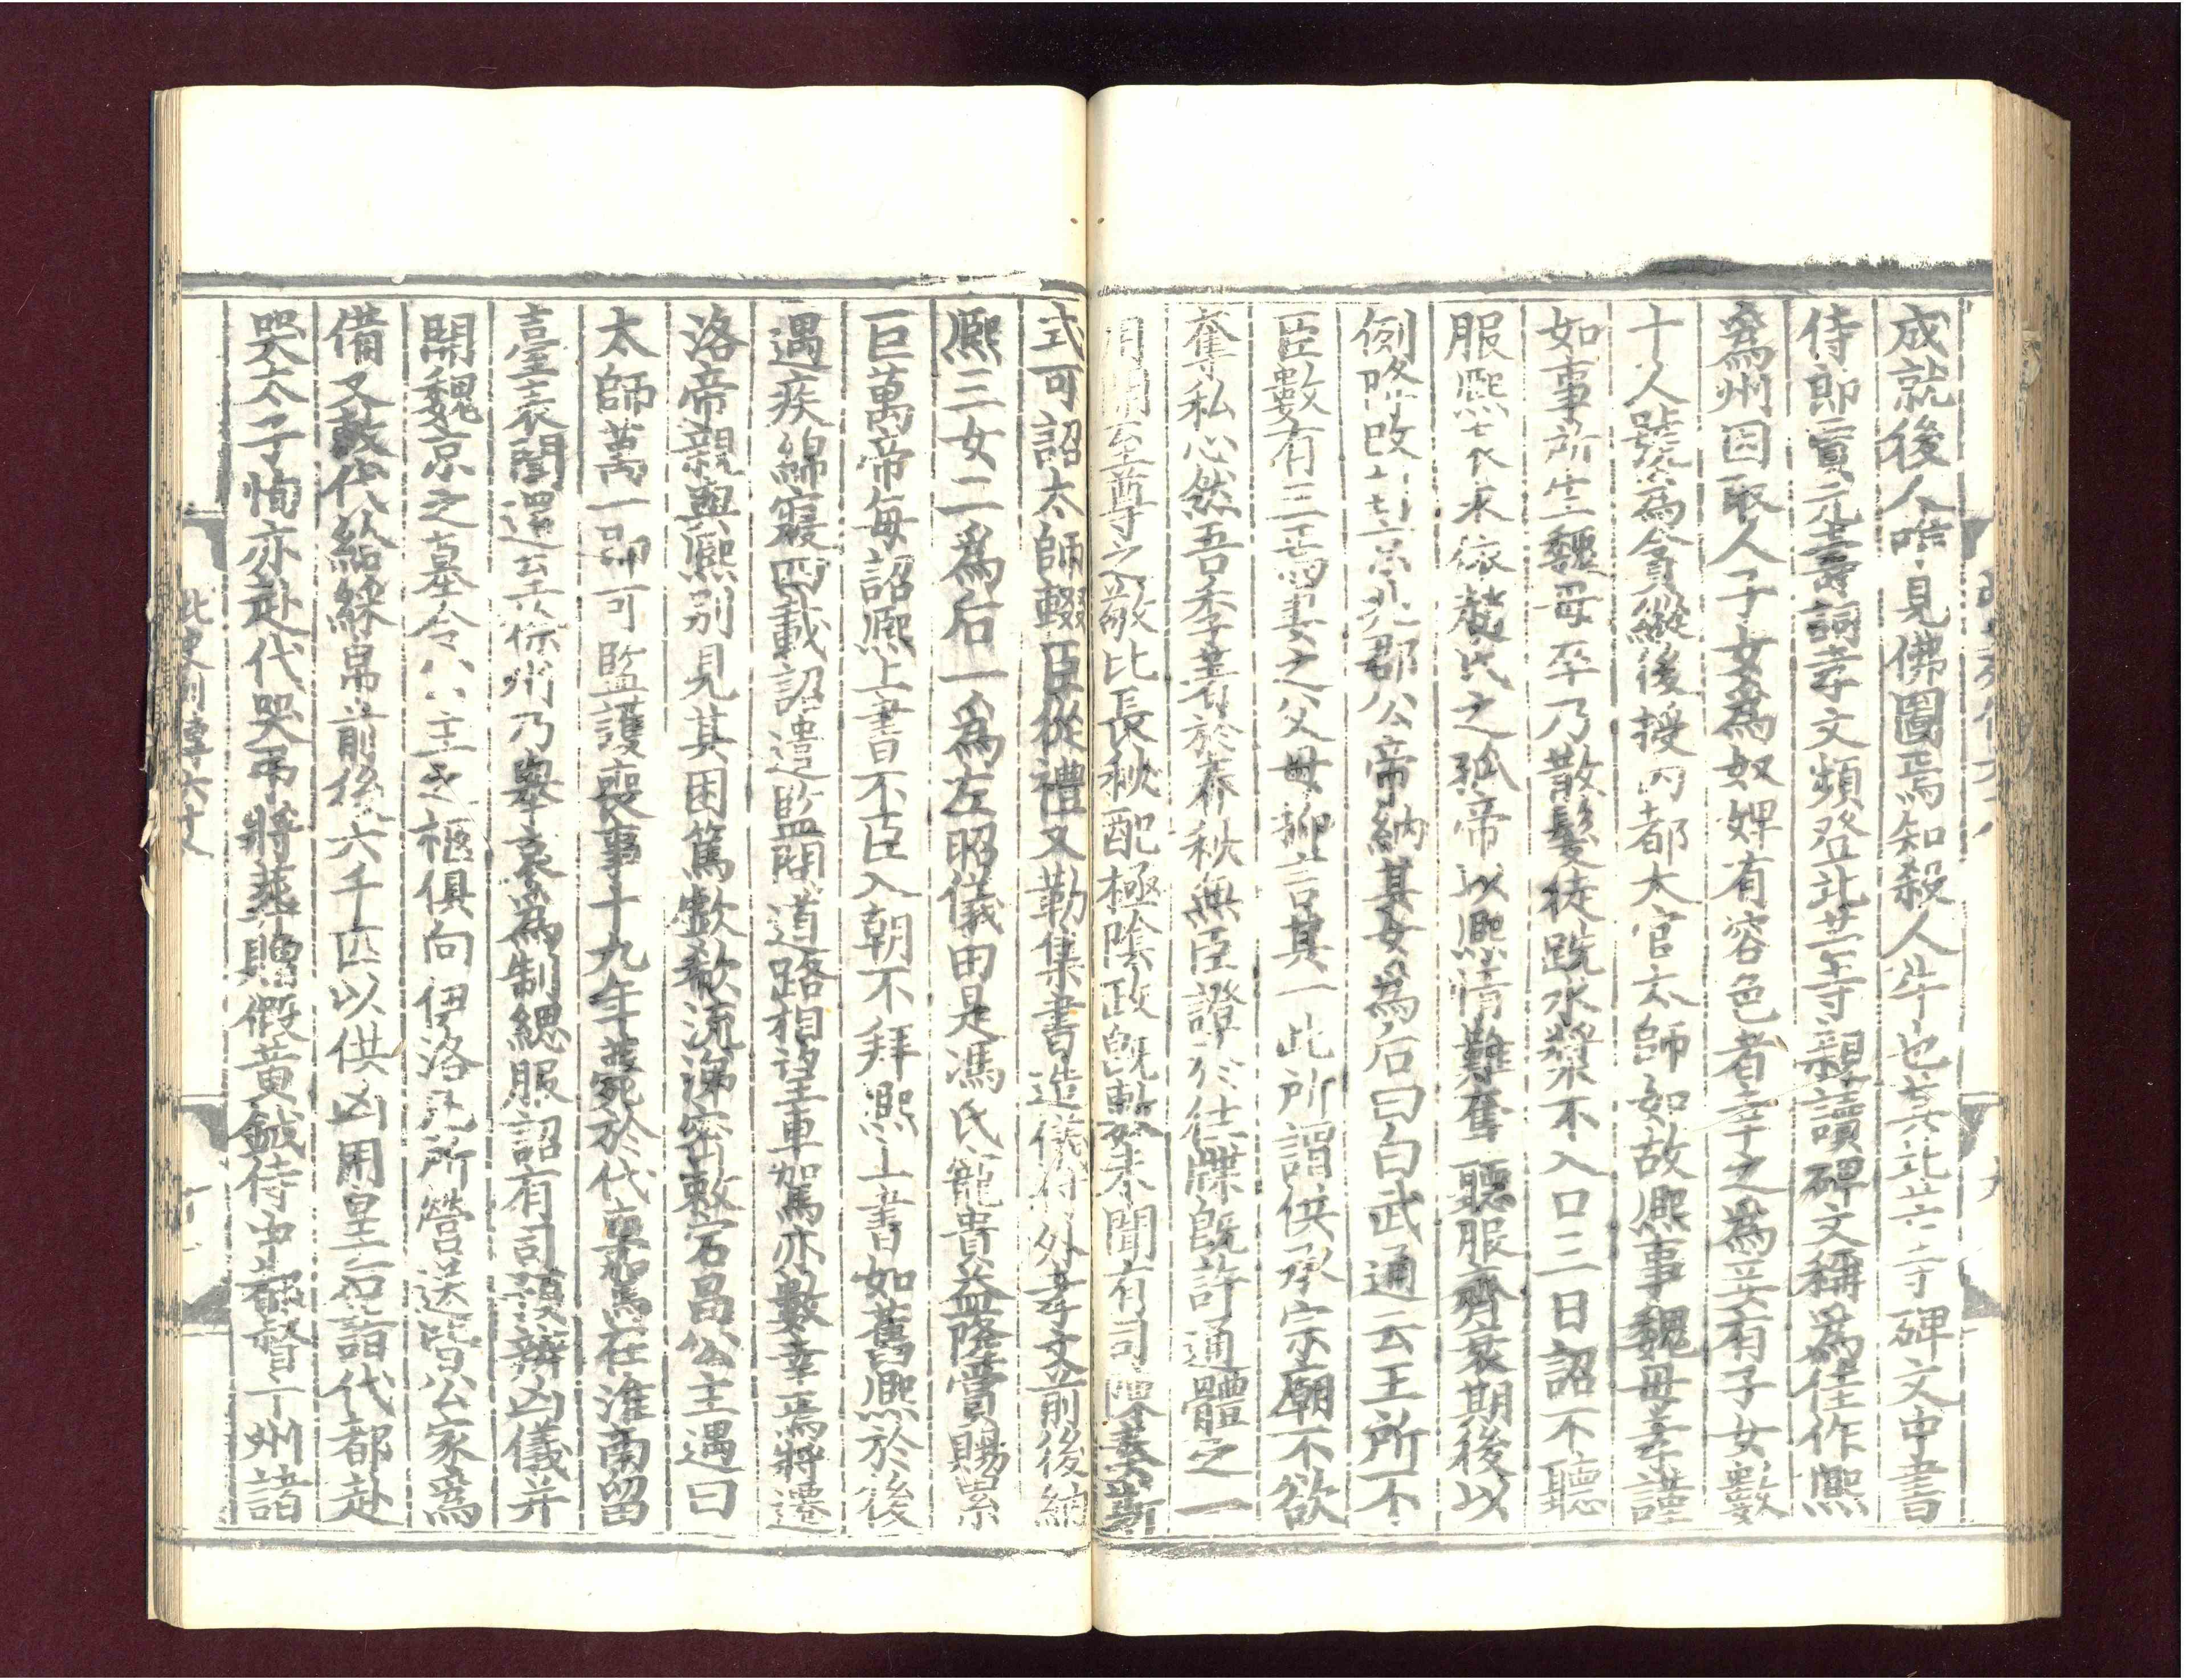 成就後人唯見佛圖焉知殺人牛也其北芒寺碑文中書
侍郎賈元壽詞孝文頻登北芒寺親讀碑文稱爲佳作熈
爲州因取人子女爲奴婢有容色者幸之爲妾有子女數
十人號爲貪縱後授內都大官太師如故熈事魏母孝謹
如事所生魏母卒乃散髮徒跣水漿不入口三日詔不聽
服熈表求依趙氏之孤帝以熈情難奪聽服齊衰期後以
例降改封京兆郡公帝納其女爲后曰白武通云王所不
臣數有三焉妻之父母抑言其一此所謂供承宗廟不欲
奪私心然吾季著於春秋無臣證於往牒旣許通體之一
用開至尊之敬比長秋配極陰政旣敷未聞有司陳奏斯
式可詔太師輟臣從禮又勒集書造儀付外孝文前後納
熈三女二爲后一爲左昭儀由是馮氏寵貴益隆賞賜累
巨萬帝每詔熈上書不臣入朝不拜熈上書如舊熈於後
遇疾綿寢四載詔遣監問道路相望車駕亦數幸焉將遷
洛帝親與熈別見其困篤歔欷流涕密敕宕昌公主遇曰
太師萬一卽可監護喪事十九年薨於代車駕在淮南留
臺表聞還至徐州乃舉哀爲制緦服詔有司預辨凶儀并
開魏京之墓令公主之柩俱向伊洛凡所營送皆公家爲
備又敕代給綵帛前後六千匹以供凶用皇后詣代都赴
哭太子恂亦赴代哭弔將葬贈假黃鉞侍中都督十州諸
北史列傳六十八